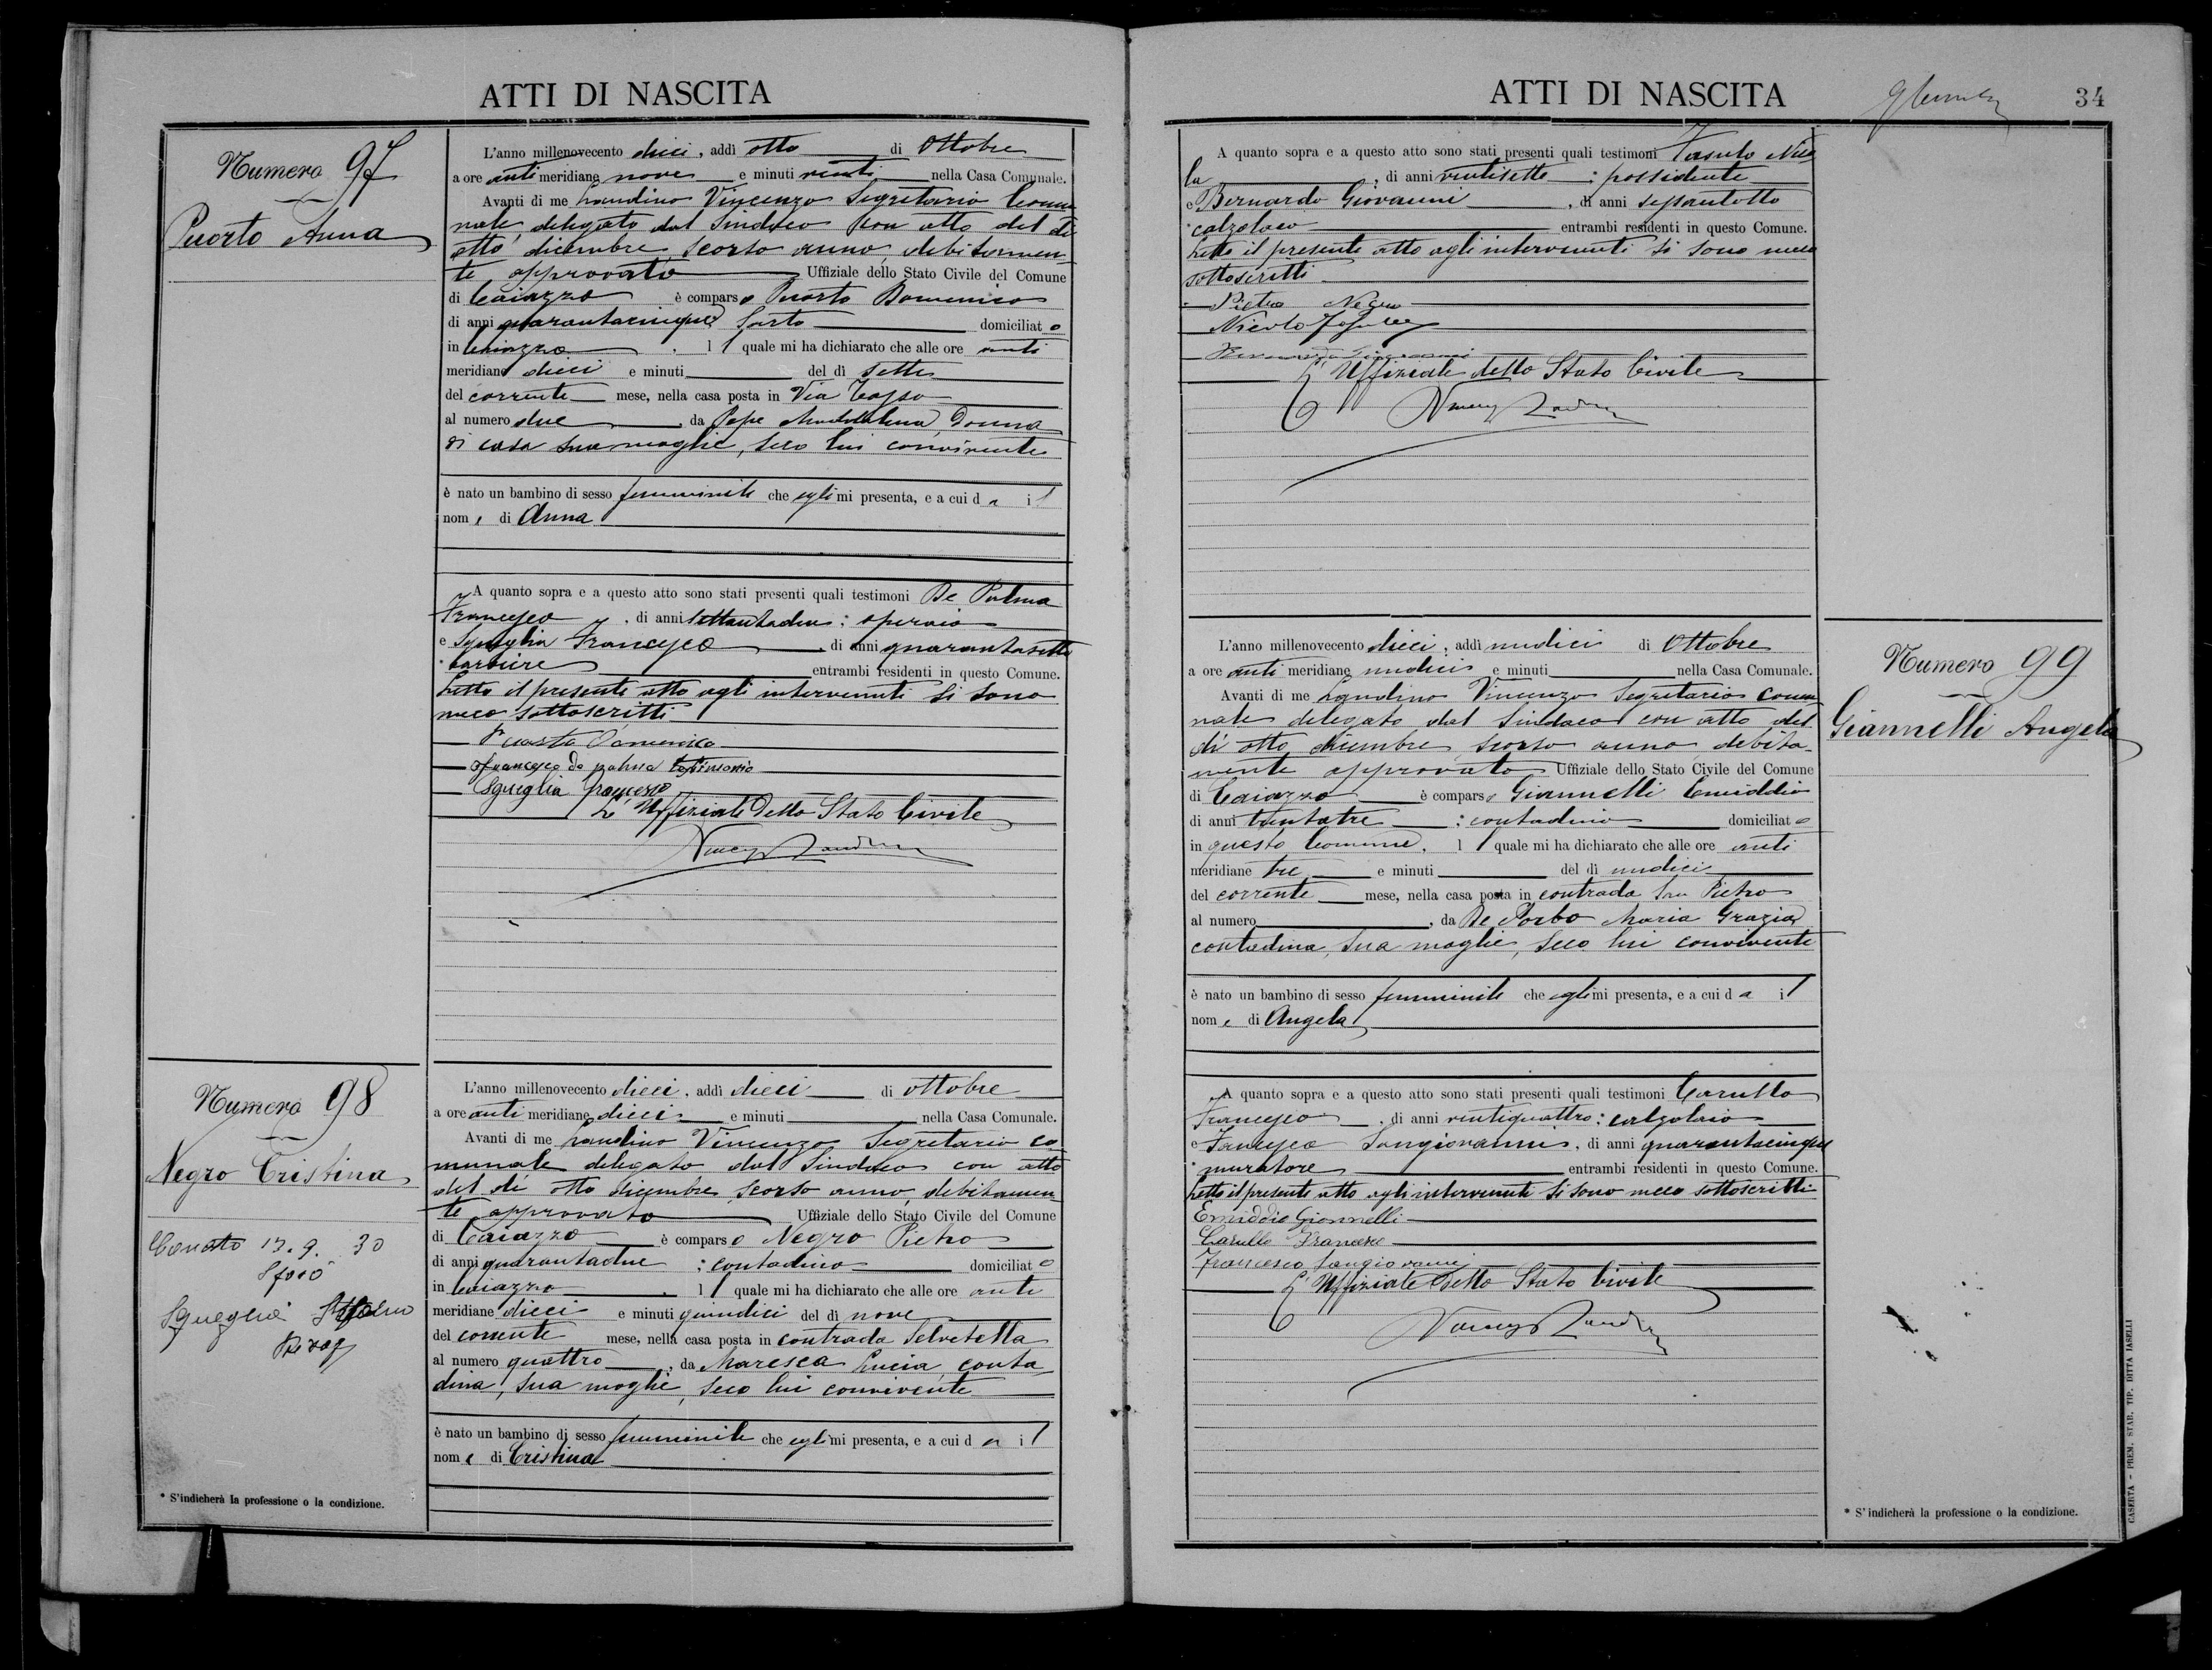 ATTI DI NASCITA
Numero 97
Puorto Anna
L'anno millenovecento dieci, addì otto di Ottobre
a ore anti meridiane nove e minuti venti nella Casa Comunale.
Avanti di me Landino Vincenzo Segretario Comu
nale, delegato dal Sindaco con atto del dì
otto dicembre scorso anno, debitamen
te approvato Uffiziale dello Stato Civile del Comune
di Caiazzo è comparso Puorto Domenico
di anni quarantacinque sarto domiciliato
in Caiazzo, il quale mi ha dichiarato che alle ore anti
meridiane dieci e minuti del dì sette
del corrente mese, nella casa posta in Via Tasso
al numero due, da Pepe Maddalena, Donna
di casa sua moglie, seco lui convivente
è nato un bambino di sesso femminile che egli mi presenta, e a cui dà il
nome di Anna
A quanto sopra e a questo atto sono stati presenti quali testimoni De Palma
Francesco, di anni settantadue; operaio
e Squeglia Francesco, di anni quarantasette
barbiere entrambi residenti in questo Comune.
Letto il presente atto agli intervenuti si sono
meco sottoscritti
Puorto Domenico
Francesco de palma testimonio
Squeglia Francesco
L'Uffiziale dello Stato Civile
Numero 98
Negro Cristina
L'anno millenovecento dieci, addì dieci di ottobre
a ore anti meridiane dieci e minuti nella Casa Comunale.
Avanti di me Landino Vincenzo Segretario co
munale delegato dal Sindaco con atto
del dì otto dicembre scorso anno, debitamen
te approvato Uffiziale dello Stato Civile del Comune
di Caiazzo è comparso Negro Pietro
di anni quarantadue; contadino domiciliato
in Caiazzo, il quale mi ha dichiarato che alle ore anti
meridiane dieci e minuti quindici del dì nove
del corrente mese, nella casa posta in contrada Selvetella
al numero quattro, da Maresca Lucia, conta
dina, sua moglie, seco lui convivente
è nato un bambino di sesso femminile che egli mi presenta, e a cui dà il
nome di Cristina
13. 9. 30
Sposò
Squeglia
* S'indicherà la professione o la condizione.
ATTI DI NASCITA
34
A quanto sopra e a questo atto sono stati presenti quali testimoni Fasulo Nico
la, di anni ventisette; possidente
e Bernardo Giovanni, di anni sessantotto
calzolaio entrambi residenti in questo Comune.
Letto il presente atto agli intervenuti si sono meco
sottoscritti
Pietro Negro
Nicola Fasulo
Bernardo Giovanni
L'Uffiziale dello Stato Civile
L'anno millenovecento dieci, addì undici di Ottobre
a ore anti meridiane undici e minuti nella Casa Comunale.
Avanti di me Landino Vincenzo Segretario comu
nale delegato dal Sindaco con atto del
dì otto dicembre scorso anno debita-
mente approvato Uffiziale dello Stato Civile del Comune
di Caiazzo è comparso Giannelli Emiddio
di anni trentatre; contadino domiciliato
in questo Comune, il quale mi ha dichiarato che alle ore anti
meridiane tre e minuti del dì undici
del corrente mese, nella casa posta in contrada San Pietro
al numero, da De Maria Grazia
contadina, sua moglie, seco lui convivente
è nato un bambino di sesso femminile che egli mi presenta, e a cui dà il
nome di Angela
A quanto sopra e a questo atto sono stati presenti quali testimoni Carullo
Francesco, di anni ventiquattro; calzolaio
e Francesco Sangiovanni, di anni quarantacinque
muratore entrambi residenti in questo Comune.
Letto il presente atto agli intervenuti si sono meco sottoscritti
Emiddio Giannelli
Carullo Francesco
Francesco Sangiovanni
L'Uffiziale dello Stato Civile
Numero 99
Giannelli Angela
* S'indicherà la professione o la condizione.
CASERTA - PREM. STAB. TIP. DITTA IASELLI